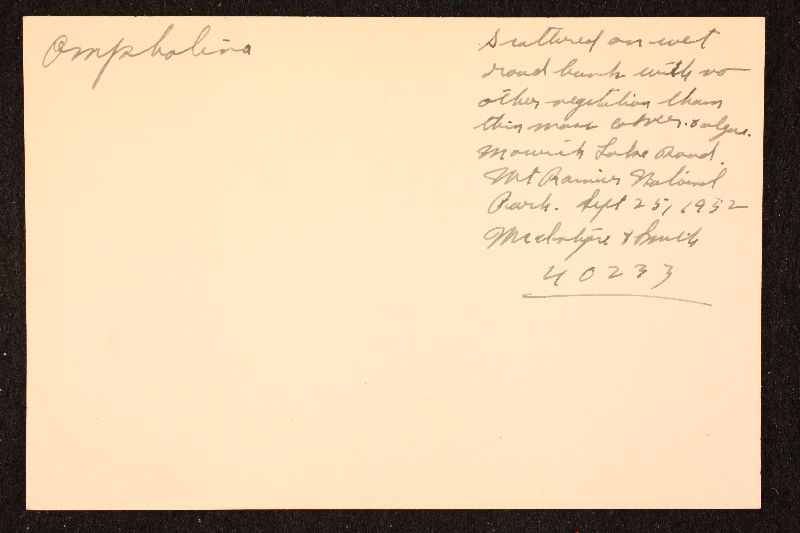 Ompholina
Scattered on wet
road bank with no
other vegetation than
thin moss cover & algae.
Mowich Lake Road.
Mt Rainier National
Park. Sept 25, 1952
McIntyre & Smith
40233